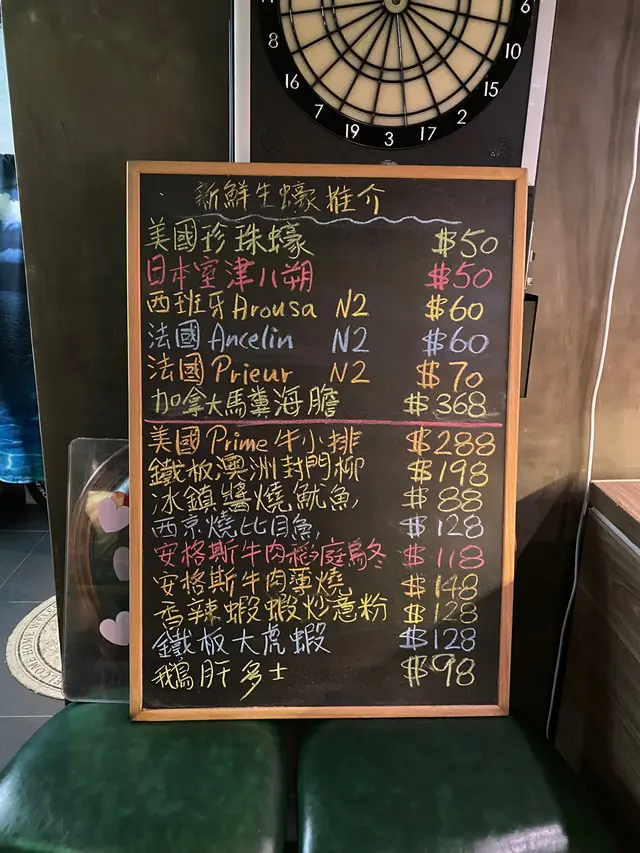 6
8
10
16
15
7
2
19
3
17
新鮮生蠔推介
美國珍珠蠔 $50
日本室津八朔 $50
西班牙Arousa N2 $60
法國Ancelin N2 $60
法國Prieur N2 $70
加拿大馬糞海膽 $368
美國Prime牛小排 $288
鐵板澳洲封門柳 $198
冰鎮醬燒魷魚 $88
西京燒比目魚 $128
安格斯牛肉稻庭烏冬 $118
安格斯牛肉薄燒 $148
香辣蝦蝦炒意粉 $128
鐵板大虎蝦 $128
鵝肝多士 $98